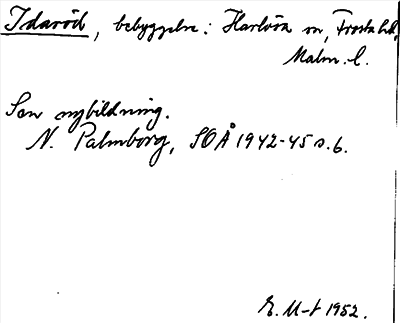 Idaröd, bebyggelse i Harlösa sn, Frosta hd,
Malm. l.
Sen nybildning.
N. Palmborg, SOÅ 1942-45 s. 6.
E. M-t 1952.